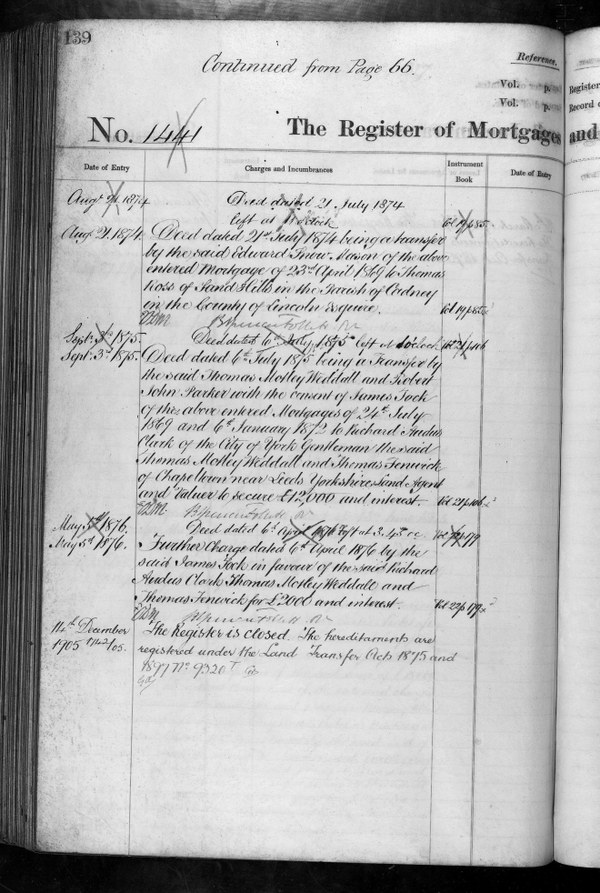 139
Continued from Page 66.
Reference.
Vol. p.
Vol. p.
Register
Record o
No. 1441 The Register of Mortgages and
Date of Entry Charges and Incumbrances Instrument Book Date of Entry
Augt 21. 1874 Deed dated 21 July 1874
left at o'clock Vol 19 p 85
Augt 21. 1874. Deed dated 21st July 1874 being a transfer
by the said Edward Snow Mason of the above
entered Mortgage of 23rd April 1869 to Thomas
Ross of Sand Hills in the Parish of Oxdney
in the County of Lincoln Esquire. Vol 19 p 85
Sept: 3rd 1875. Deed dated 6th July 1875 left at o'clock Vol 21 p 106
Sept: 3rd 1875. Deed dated 6th July 1875 being a Transfer by
the said Thomas Motley Weddall and Robert
John Parker with the consent of James Tock
of the above entered Mortgages of 24th July
1869 and 6th January 1872 to Richard Audus
Clark of the City of York Gentleman the said
Thomas Motley Weddall and Thomas Fenwick
of Chapeltown near Leeds Yorkshire Land Agent
and Valuer to secure £12,000 and interest. Vol 21 p 106
May 3rd 1876. Deed dated 6th April 1876 left at 3.45 Vol 22 p 179
May 3rd 1876. Further Charge dated 6th April 1876 by the
said James Tock in favour of the said Richard
Audus Clark Thomas Motley Weddall and
Thomas Fenwick for £2000 and interest. Vol 22 p 179
14th December The Register is closed. The hereditaments are
1905 1742/05. registered under the Land Transfer Acts 1875 and
1897 No 9320